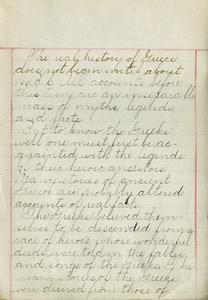 The real history of Greece
does not begin until about
B.C. All accounts before
this time are an inseparable
mass of myths, legends
and facts.
But to know the Greeks
well one must first be ac-
quainted with the legends
of their heroic ancestors
Many stories of ancient
Greece are probably altered
accounts of real facts.
The Greeks believed them-
selves to be descended from a
race of heroes, whose wonderful
deeds were told in the fables
and songs of the Greeks. The
names of the Greeks
were derived from those of